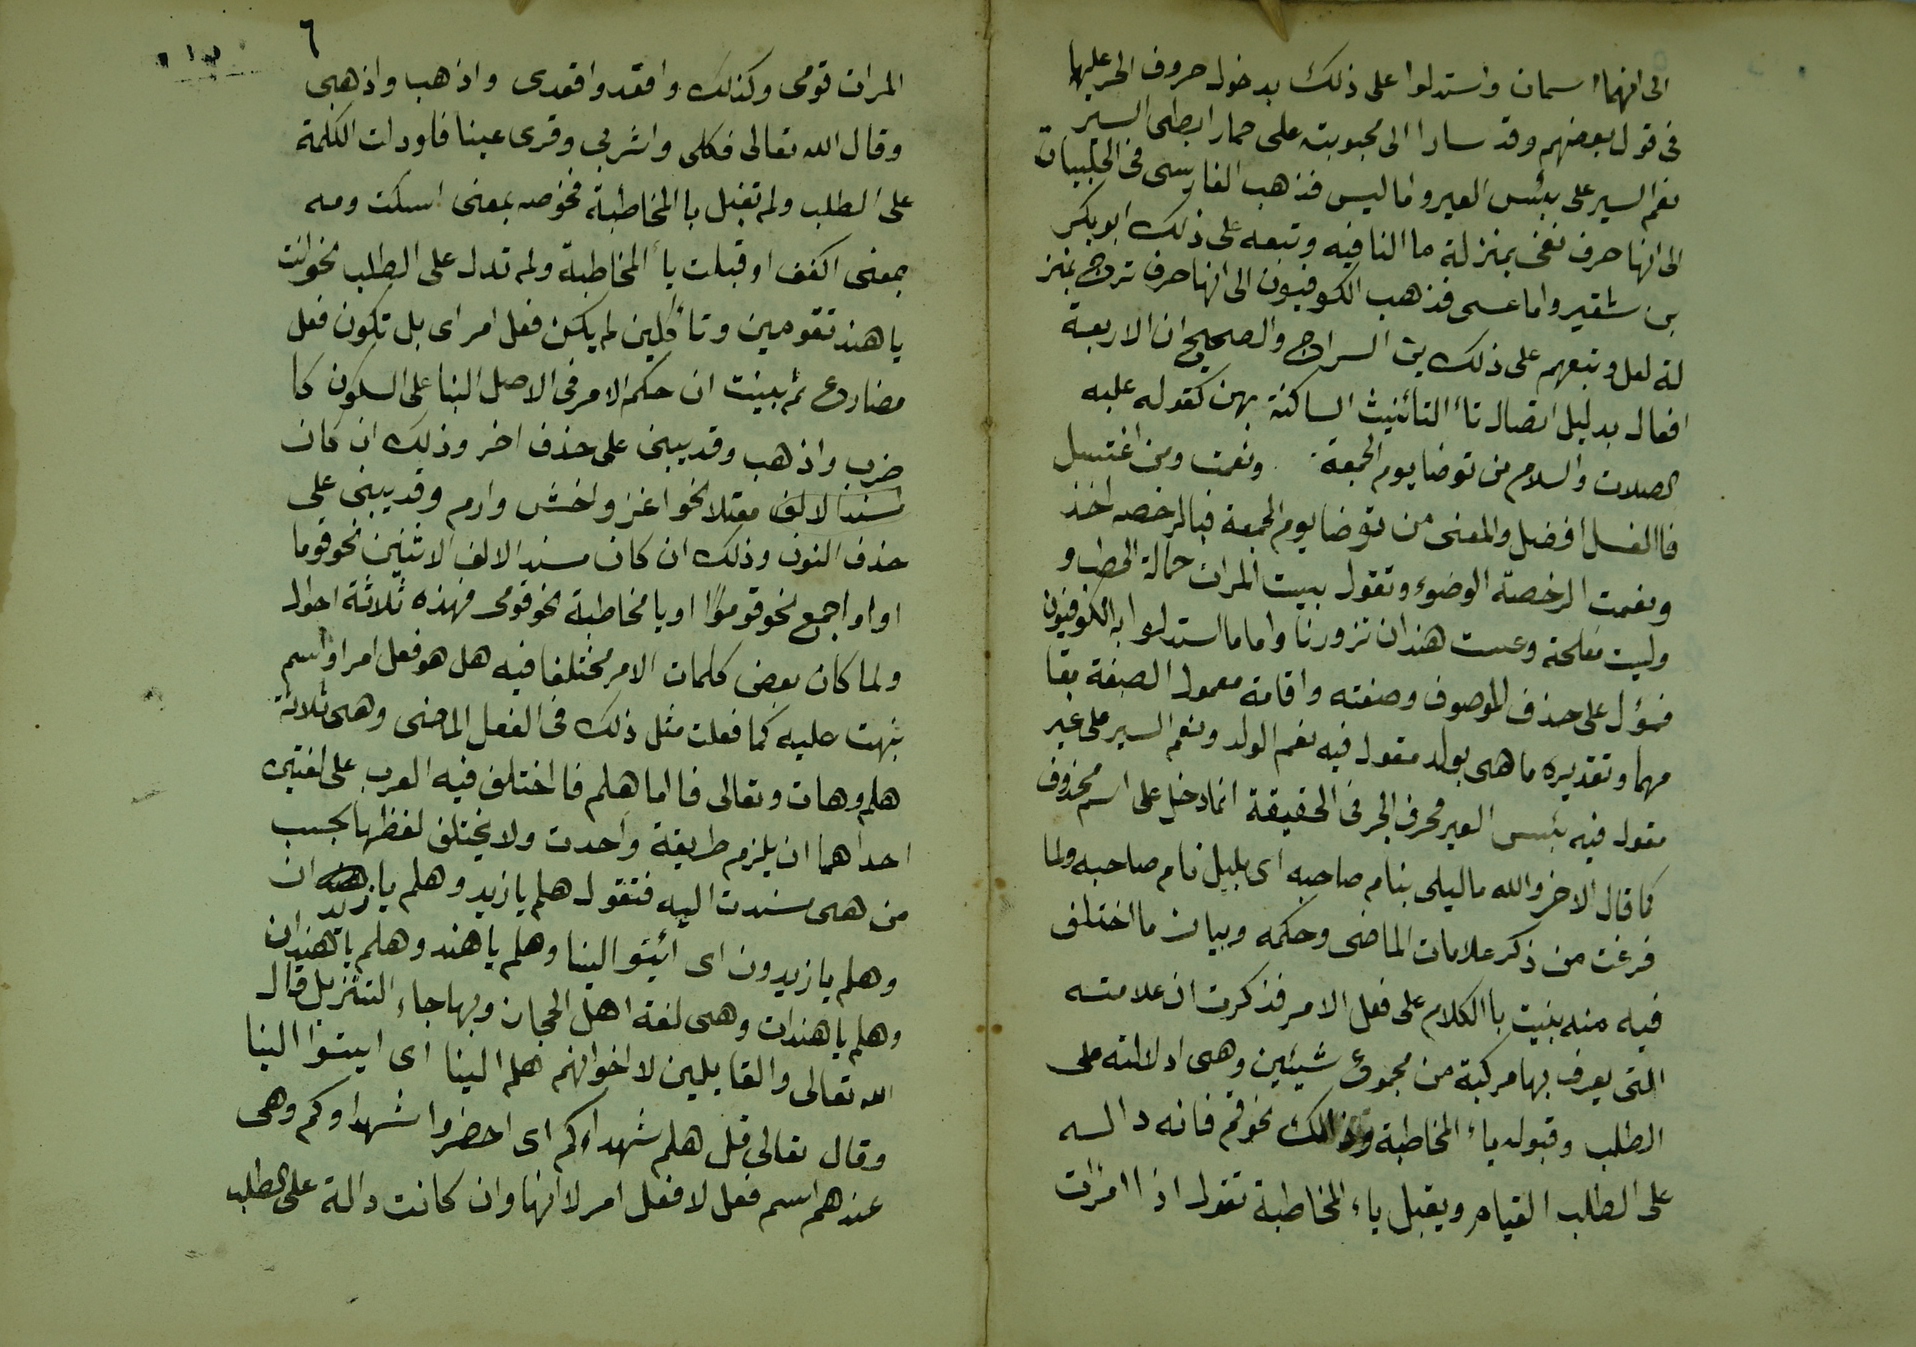 الى انهما اسمان واستدلوا على ذلك بدخول حروف الجر عليها
فى قول بعضهم وقد سارا الى محبوبته على حمار ابطى السير
نعم السير على بئس العير واما ليس فذهب الفارسى فى الحلبيات
الى انها حرف نفى بمنزلة ما النافيه وتبعه على ذلك ابو بكر
بن شقير واما عسى فذهب الكوفيون الى انها حرف ترج بمنز
لة لعل وتبعهم على ذلك بن السراج والصحيح ان الاربعة
افعال بدليل اتصال تاء التأنيث الساكنة بهن كقوله عليه
الصلات والسلام من توضا يوم الجمعة ونعمت ومن اغتسل
فاالغسل افضل والمعنى من توضا يوم الجمعة فباالرخصه اخذ
ونعمت الرخصة الوضوء وتقول بيست المرات حمالة الحطب و
وليست مفلحة وعست هندان تزورنا واما ما استدلوا به الكوفيون
فمؤل على حذف الموصوف وصفته واقامة معمول الصفة مقا
مهما وتقديره ما هى بولد مقول فيه نعم الولد ونعم السير على عير
مقول فيه بئس العير فحرف الجر فى الحقيقة انما دخل على اسم محذوف
كما قال الاخر والله ما ليلى بنام صاحبه اى بليل نام صاحبه ولما
فرغت من ذكر علامات الماضى وحكمه وبيان ما اختلف
فيه منه بنيت باالكلام على فعل الامر فذكرت ان علامته
التى يعرف بها مركبة من مجموع شيئين وهى ادلالته على
الطلب وقبوله ياء المخاطبة وذالك نحو قم فانه دالـه
على الطلب القيام ويقبل ياء المخاطبة تقول اذا امرات
٦
المرات قومى وكذلك واقعد واقعدى واذهب واذهبى
وقال الله تعالى فكلى واشربى وقرى عينا فلودلت الكلمة
على الطلب ولم تقبل يا المخاطبة نحوصه بمعنى اسكت ومه
بمعنى اكفف او قبلت ياء المخاطبة ولم تدل على الطلب نحو انت
يا هند تقومين وتاكلين لم يكن فعل امر اى بل تكون فعل
مضارع ثم بينت ان حكم الامر فى الاصل البنا على السكون كا
ضرب واذهب وقد يبنى على حذف اخر وذلك ان كان
مسندا لالف معتلا نحو اغز واخش وارم وقد يبنى على
حذف النون وذلك ان كان مسندا لالف الاثنين نحو قوما
او واو اجمع نحو قوموا او يا مخاطبة نحو قومى فهذه ثلاثة احوال
ولما كان بعض كلمات الامر مختلفا فيه هل هو فعل امر او اسم
نبهت عليه كما فعلت مثل ذلك فى الفعل الماضى وهى ثلاثة
هلم وهات وتعالى فااما هلم فااختلف فيه العرب على لغتين
احداهما ان يلزم طريقة واحدت ولا يختلف لفظها بحسب
من هى مسندت اليه فتقول هلم يا زيد وهلم يا زيدان
وهلم يا زيدون اى ائيتو الينا وهلم يا هند وهلم يا هندان
وهلم يا هندات وهى لغة اهل الحجاز وبها جاء التنزيل قال
الله تعالى والقايلين لاخوانهم هلم الينا اى ايتوا الينا
وقال تعالى قل هلم شهداءكم اى احضروا شهداوكم وهى
عندهم اسم فعل لا فعل امر لاانها وان كانت دالة على الطلب